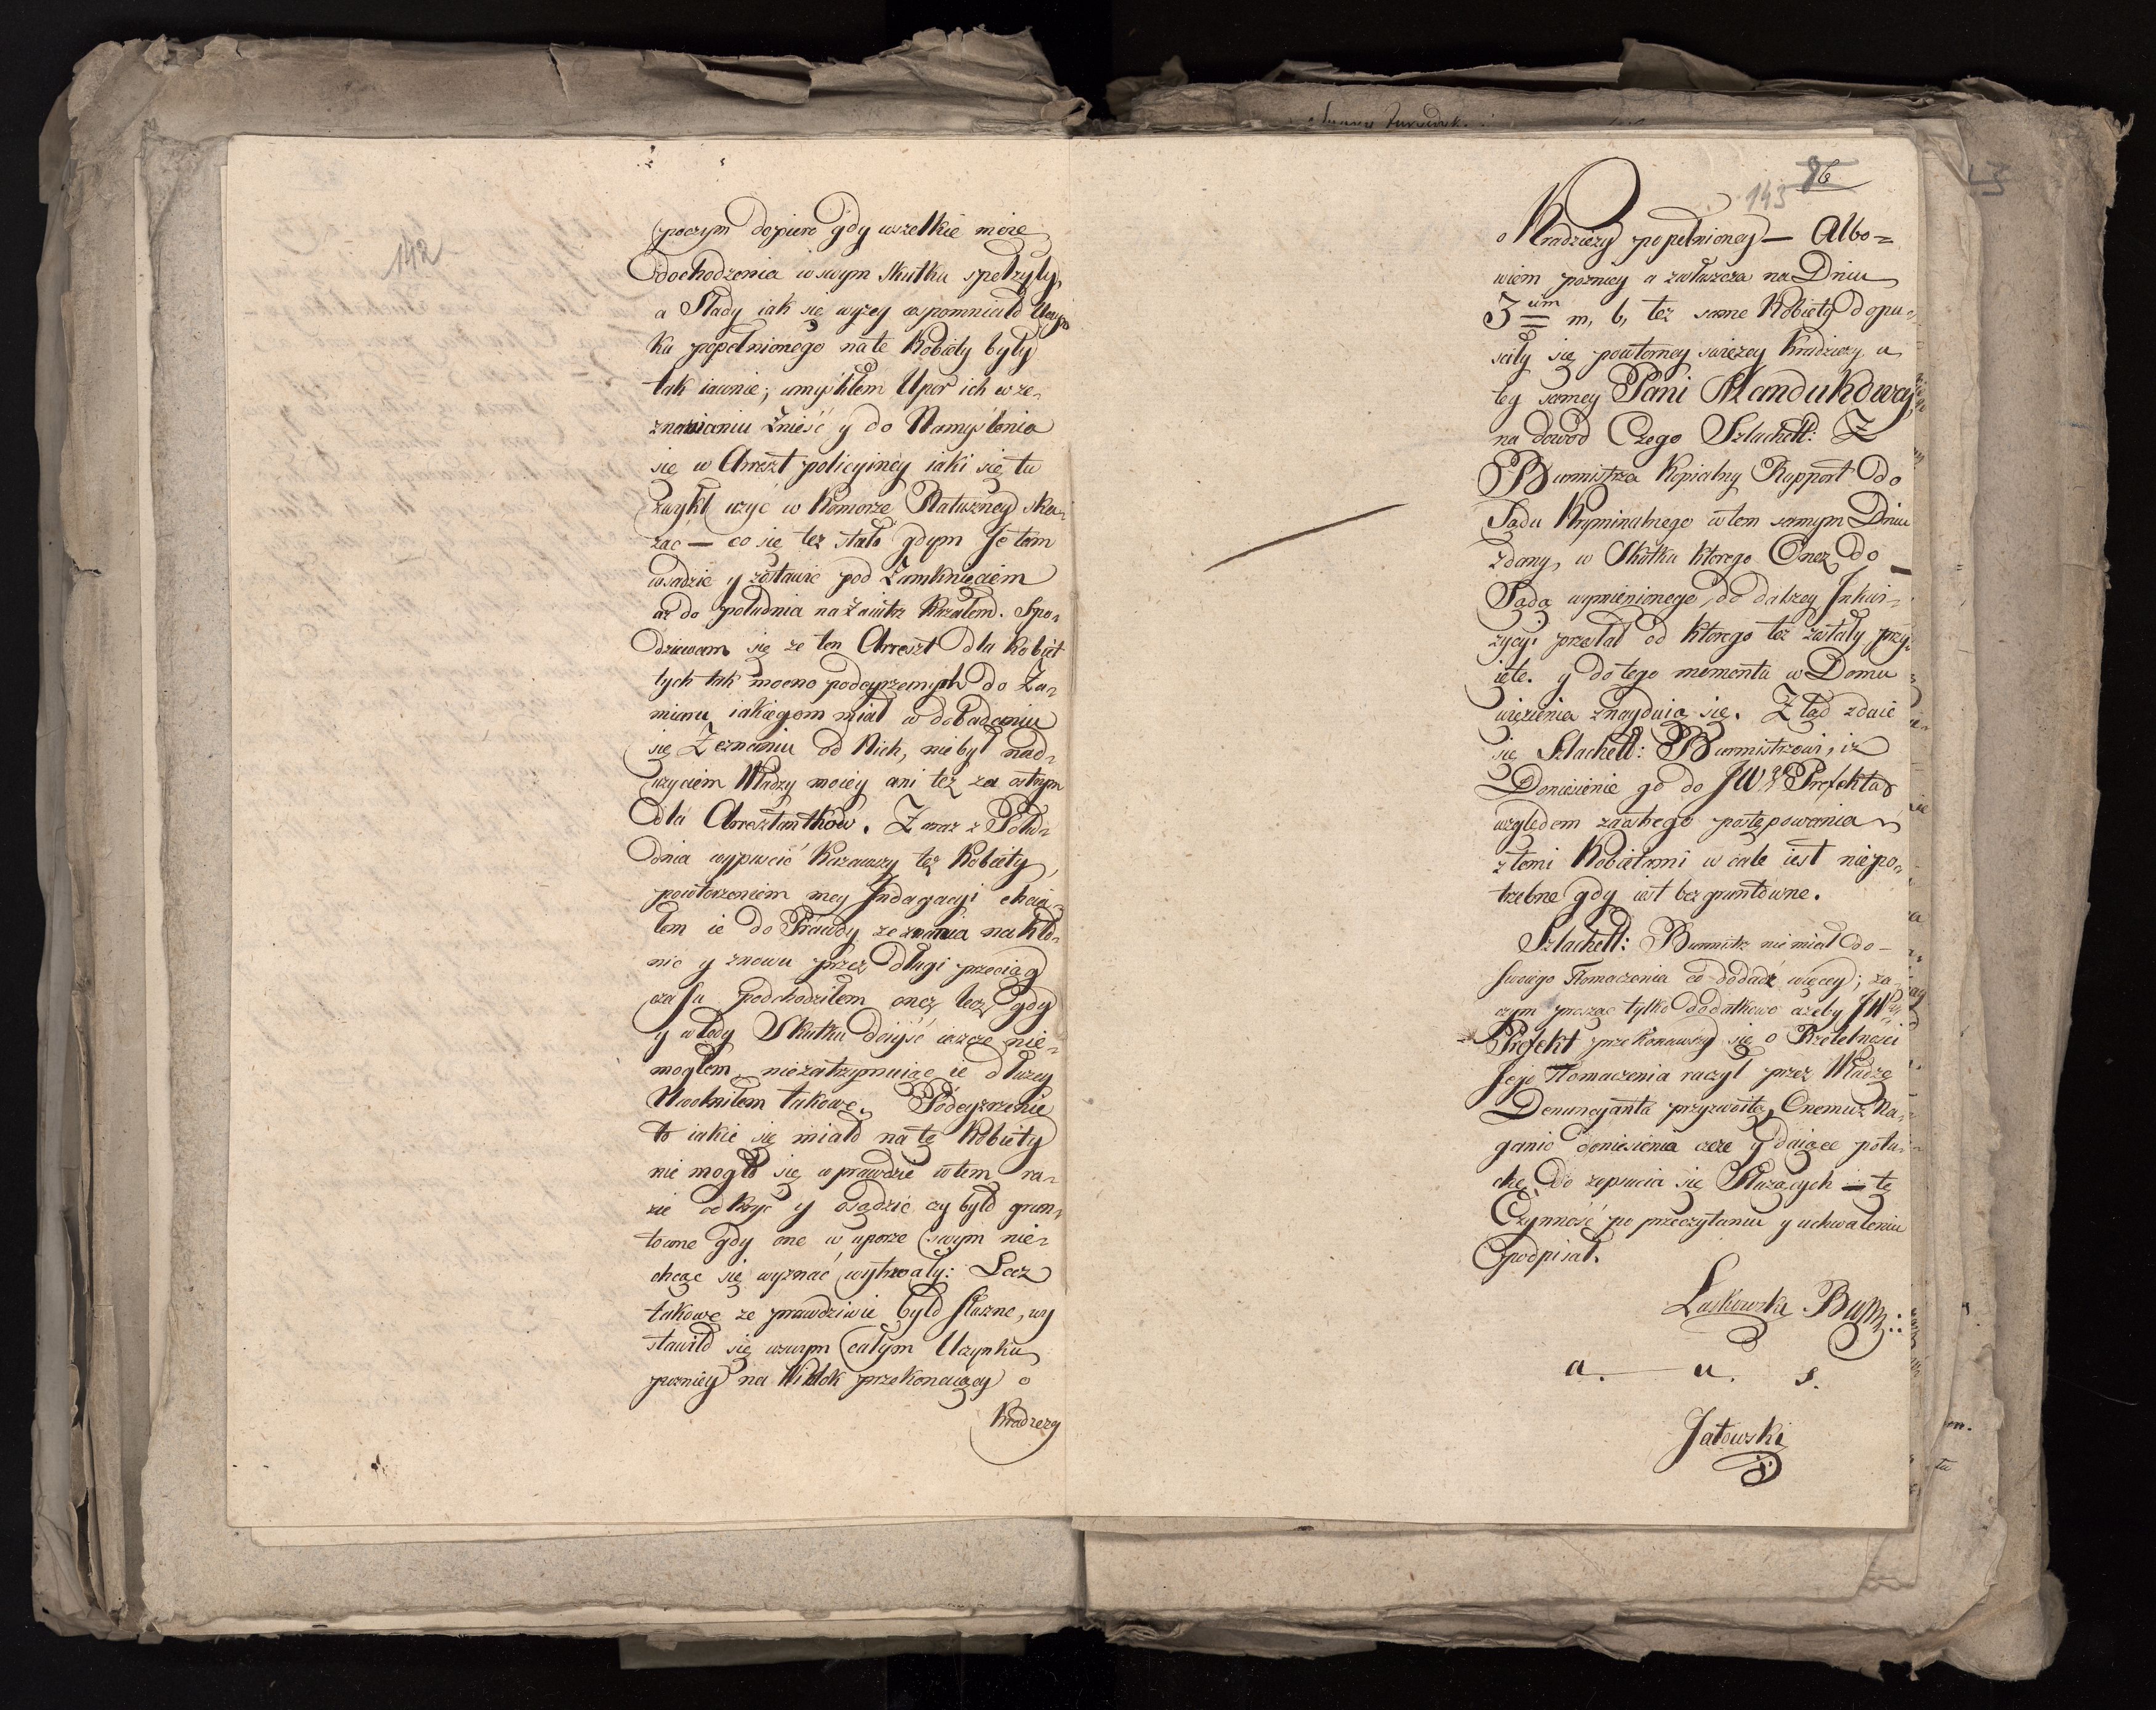 142
poczym dopiero gdy wszelkie moie
dochodzenia w swym skutku spełzyły,
a Slady iak się wyzey wspomniało Uczyn
ku popełnionego na te Kobiety były
tak iawnie; umyśliłem Upor ich w ze-
znawianiu znieść y do Namyslenia
się w Areszt policyiney iaki się tu
zwykł uzyć w Komorze Ratuszney ska-
zać — co się też stało gdym Je tam
wsadzić y zostawić pod Zamknięciem
az do południa na zaiutrz kazałem. Spo-
dziewam się ze ten Arreszt dla kobiet
tych tak mocno podeyrzemych do Za-
miaru iakiegom miał w dobadaniu
się Zeznaniu od Nich, nie był nad-
uzyciem Władzy moiey ani też za ostrym
dla Aresztantków. Zaraz z Połu-
dnia wypuścić kazawszy też Kobiety,
powtorzeniem mey Indagacyi chcia-
łem ie do Prawdy zeznania nakło-
nić y znowu przez długi przeciąg
czasu podchodziłem onez, lecz gdy
y wtedy Skutku doiyść ieszcze nie-
mogłem, niezatrzymuiąc ie dłuzey
Uwolniłem takowe. Podeyzrzenie
to iakie się miało na tę Kobiety
nie mogło się wprawdzie w tem ra-
zie odkryć y osądzić czy było grun-
towne gdy one w uporze swym nie-
chcąc się wyznać wytrwały: Lecz
takowe ze prawdziwie było słuszne, wy
stawiło się w swym całym Uczynku
pozniey na Widok przekonaiący o
Kradzezy
143 86
o Kradziezy popełnioney — Albo=
wiem pozniey a zwłaszcza na Dniu
3um m, b, tez same Kobiety dopu-
sciły się powtorney swiezey kradziezy u
tey samey Pani Skandukowey,
na dowod Czego Szlachett: Z
Burmistrza Kopialny Rapport do
Sądu Kryminalnego w tem samym Dniu
zdany, w Skutku ktorego Onez do
Sądu wymienionego, do dalszey Inkwi-
zycyi przesłał od ktorego też zostały przy-
ięte. y do tego momentu w Domu
więzienia znayduią się. Z tąd zdaie
się Szlachett: Burmistrzowi, iz
Doniesienie go do JW Prefekta
względem zawłnego postępowania
z temi Kobietami w cale iest niepo-
trzebne gdy iest bezgruntowne.
Szlachett: Burmistrz nie miał do-
swoiego Tłomaczenia co dodadz więcey; za-
czym prosząc tylko dodatkowo azeby JW
Prefekt przekonawszy się o Rzetelności
Jego Tłomaczenia raczył przez Władzę
Denuncyanta przyzwoitą, Onemuz Na-
ganić doniesienia czcze y daiące potu-
chę do zepsucia się Służących — tę
Czynność po przeczytaniu y uchwaleniu
podpisał.
Laskowski Burm:
a. u. s.
Jatowski